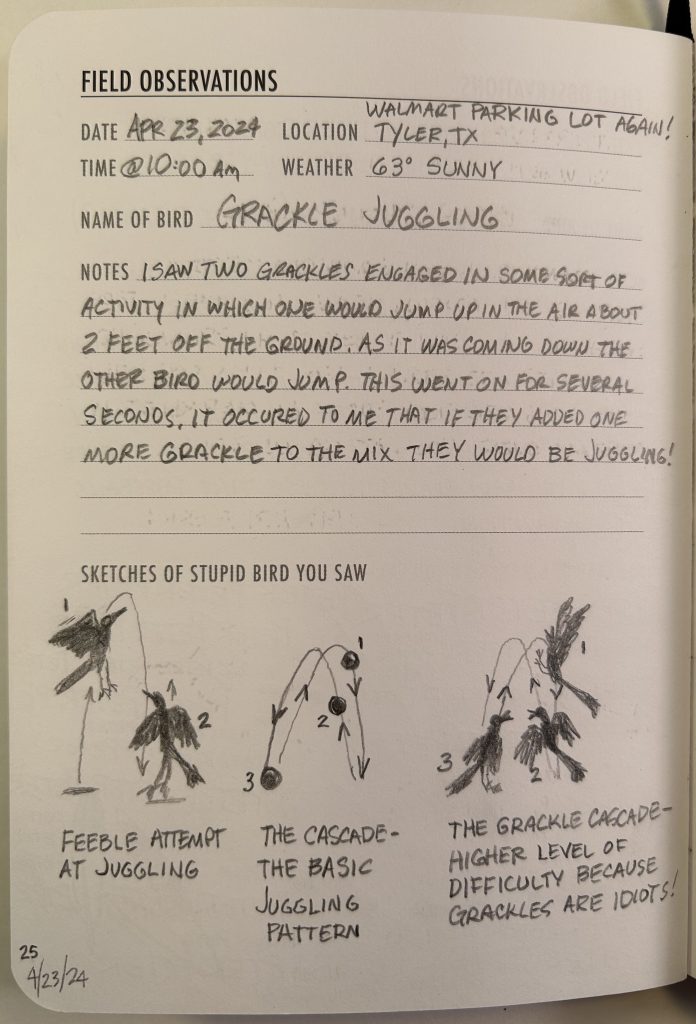 FIELD OBSERVATIONS
WALMART PARKING LOT AGAIN!
DATE APR 23, 2024 LOCATION TYLER, TX
TIME @10:00 AM WEATHER 63° SUNNY
NAME OF BIRD GRACKLE JUGGLING
NOTES I SAW TWO GRACKLES ENGAGED IN SOME SORT OF
ACTIVITY IN WHICH ONE WOULD JUMP UP IN THE AIR ABOUT
2 FEET OFF THE GROUND. AS IT WAS COMING DOWN THE
OTHER BIRD WOULD JUMP. THIS WENT ON FOR SEVERAL
SECONDS. IT OCCURED TO ME THAT IF THEY ADDED ONE
MORE GRACKLE TO THE MIX THEY WOULD BE JUGGLING!
SKETCHES OF STUPID BIRD YOU SAW
1
2
FEEBLE ATTEMPT
AT JUGGLING
1
2
3
THE CASCADE-
THE BASIC
JUGGLING
PATTERN
1
3
2
THE GRACKLE CASCADE-
HIGHER LEVEL OF
DIFFICULTY BECAUSE
GRACKLES ARE IDIOTS!
25
4/23/24